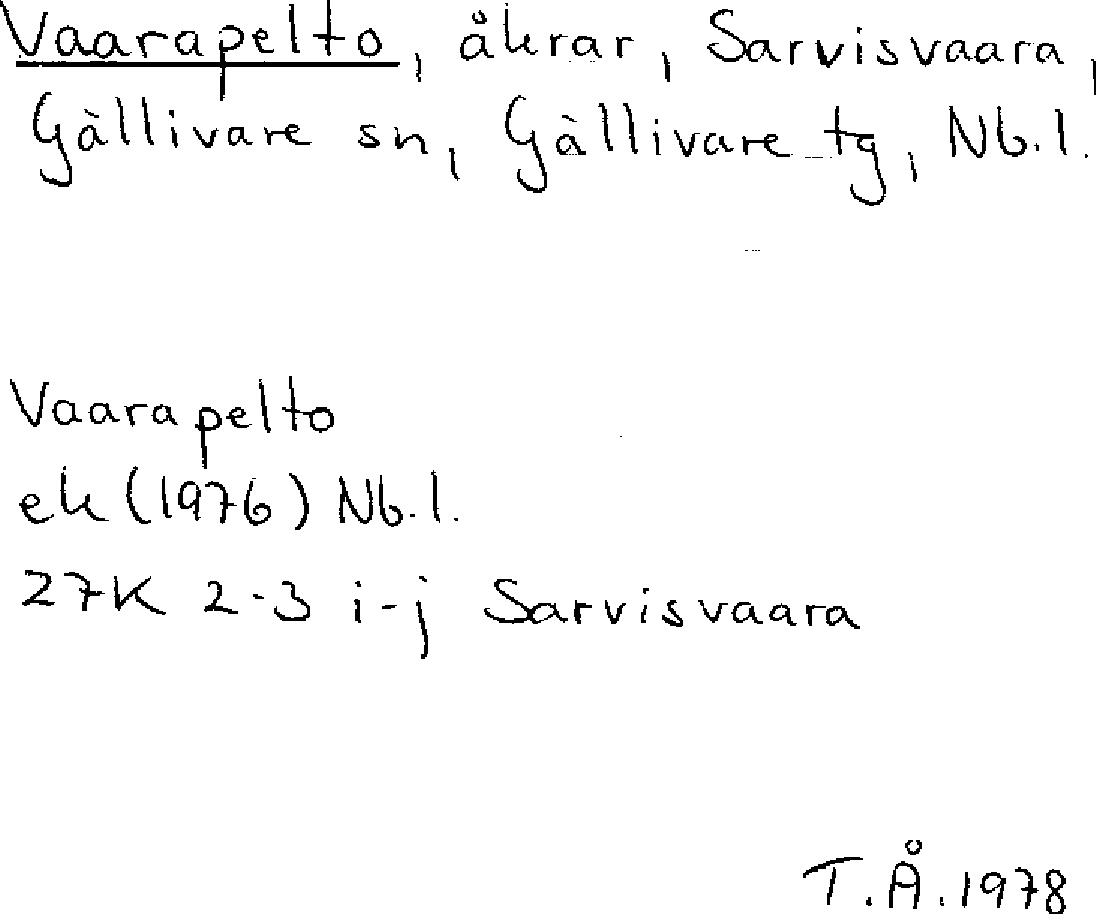 Vaarapelto, åkrar, Sarvisvaara,
Gällivare sn, Gällivare tg, Nb.l.
Vaarapelto
ek (1976) Nb.l.
27K 2-3 i-j Sarvisvaara
T.Å. 1978